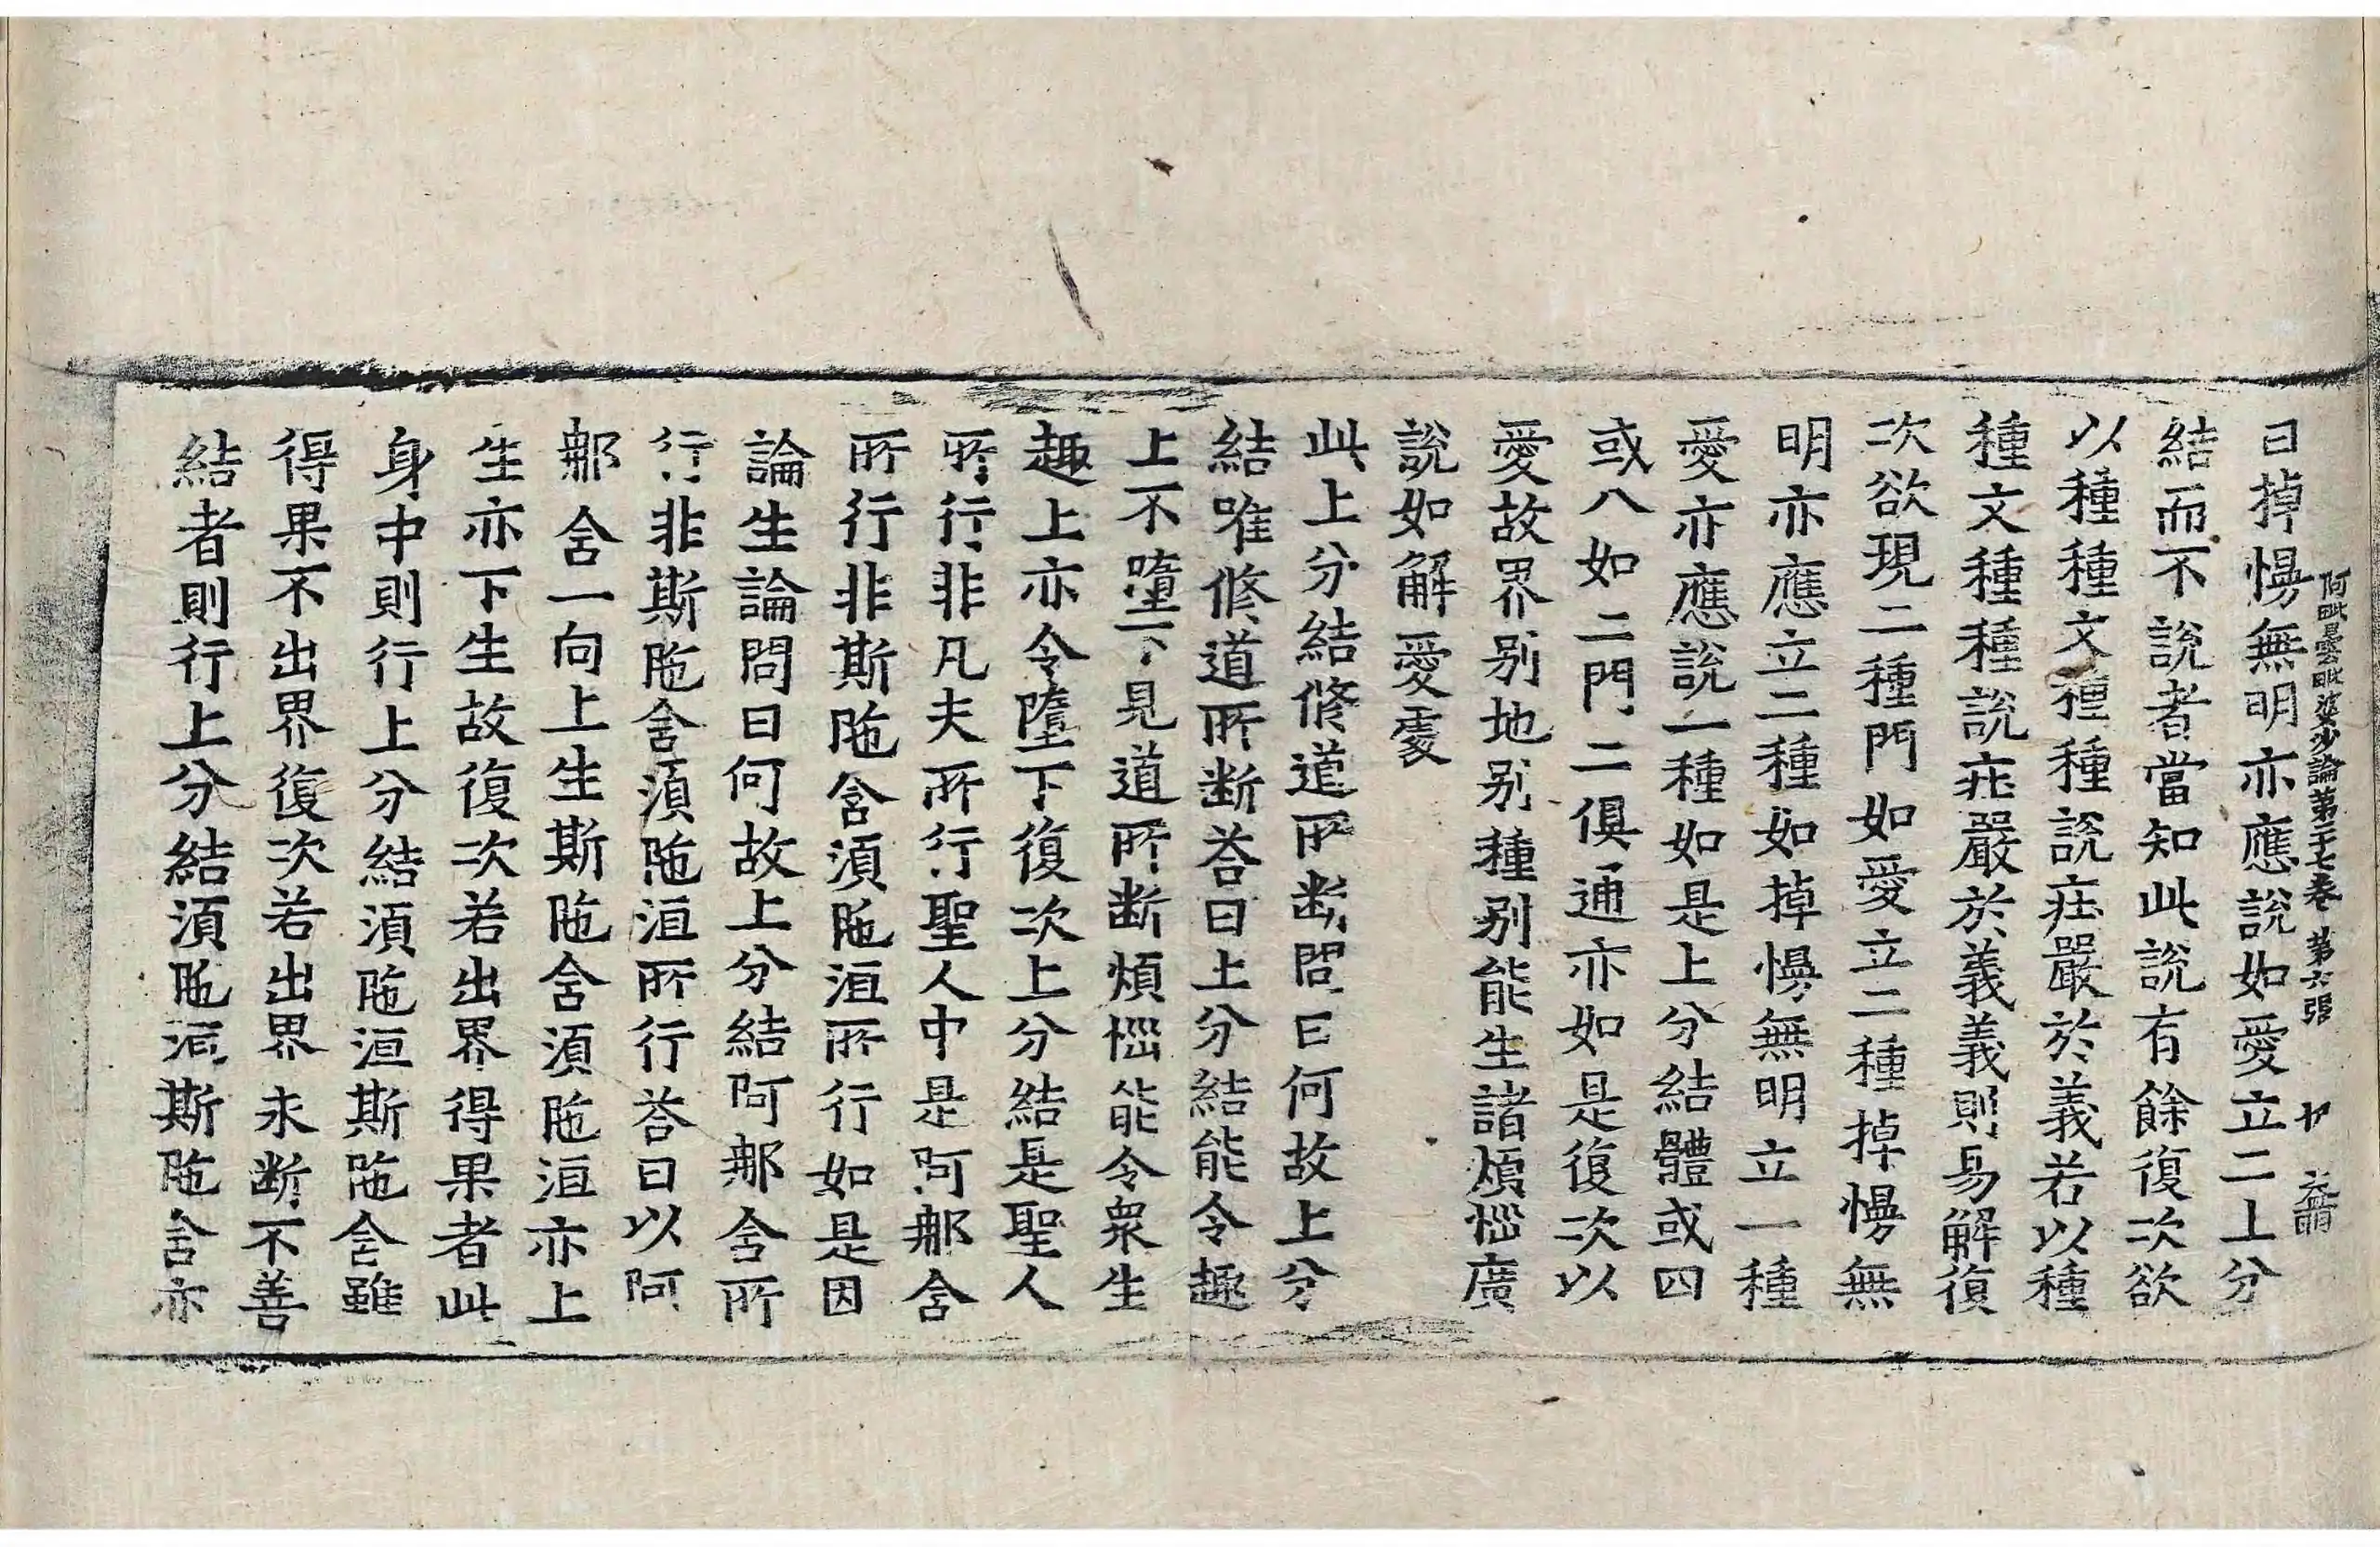 阿毗曇毗婆沙論第二十七卷 第六張
曰掉慢無明亦應說如愛立二上分
結而不說者當知此說有餘復次欲
以種種文種種說疰嚴於義若以種
種文種種說疰嚴於義義則易解復
次欲現二種門如愛立二種掉慢無
明亦應立二種如掉慢無明立一種
愛亦應說一種如是上分結體或四
或八如二門二俱通亦如是復次以
愛故界別地別種別能生諸煩惱廣
說如解愛處
此上分結修道所断問曰何故上分
結唯修道所断荅曰上分結能令趣
上不墮下見道所断煩惱能令衆生
趣上亦令墮下復次上分結是聖人
所行非凡夫所行聖人中是阿那含
所行非斯陁含湏陁洹所行如是因
論生論問曰何故上分結阿那含所
行非斯陁含湏陁洹所行荅曰以阿
那含一向上生斯陁含湏陁洹亦上
生亦下生故復次若出界得果者此
身中則行上分結湏陁洹斯陁含雖
得果不出界復次若出界未断不善
結者則行上分結湏陁洹斯陁含亦